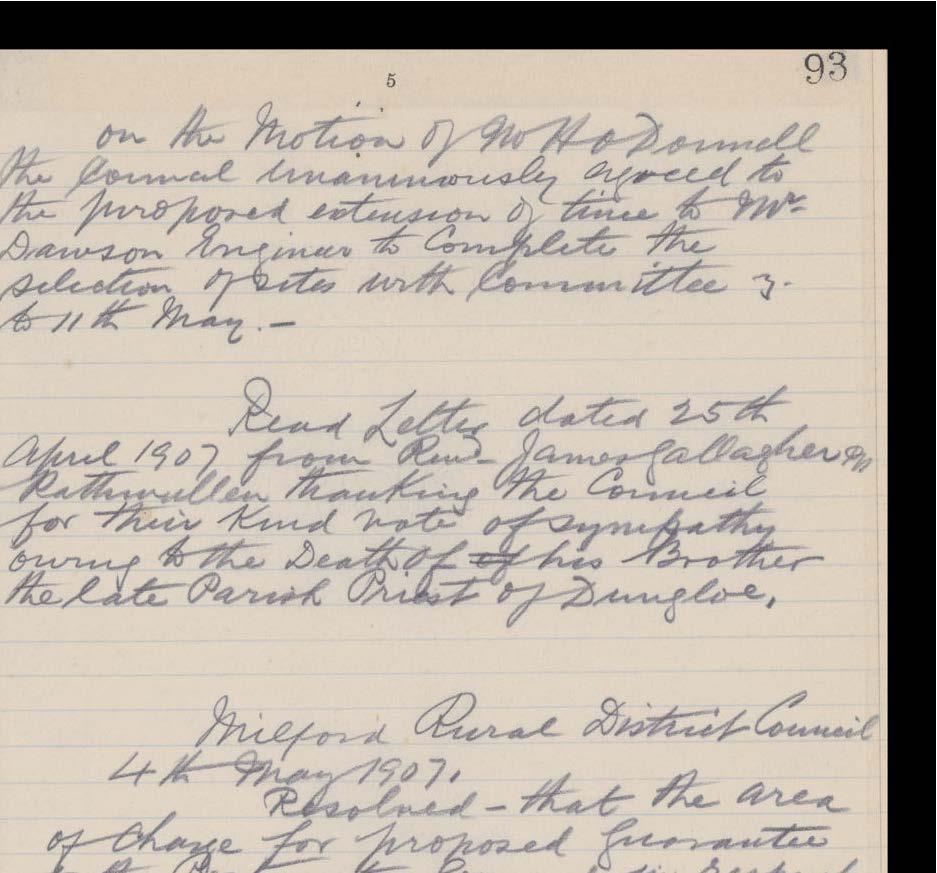 93
5
on the Motion of Mr H O Donnell
the Council unanimously agreed to
the proposed extension of time to Mr
Dawson Engineer to Complete the
selection of sites with Committee 3.
to 11th May. —
Read Letter dated 25th
April 1907 from Revd James Gallagher
Rathmullen thanking the Council
for their Kind vote of sympathy
owing to the Death of of his Brother
the late Parish Priest of Dungloe,
Milford Rural District Council
4th May 1907.
Resolved – that the area
of Charge for proposed Guarantee